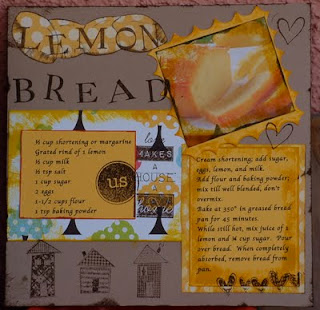 LEMON
BREAD
½ cup shortening or margarine
Grated rind of 1 lemon
½ cup milk
½ tsp salt
1 cup sugar
2 eggs
1-1/2 cups flour
1 tsp baking powder
us
lo
MAKES
A
HOUSE
A
home
Cream shortening; add sugar,
eggs, lemon, and milk.
Add flour and baking powder;
mix till well blended, don't
overmix.
Bake at 350° in greased bread
pan for 45 minutes.
While still hot, mix juice of 1
lemon and ¼ cup sugar. Pour
over bread. When completely
absorbed, remove bread from
pan.